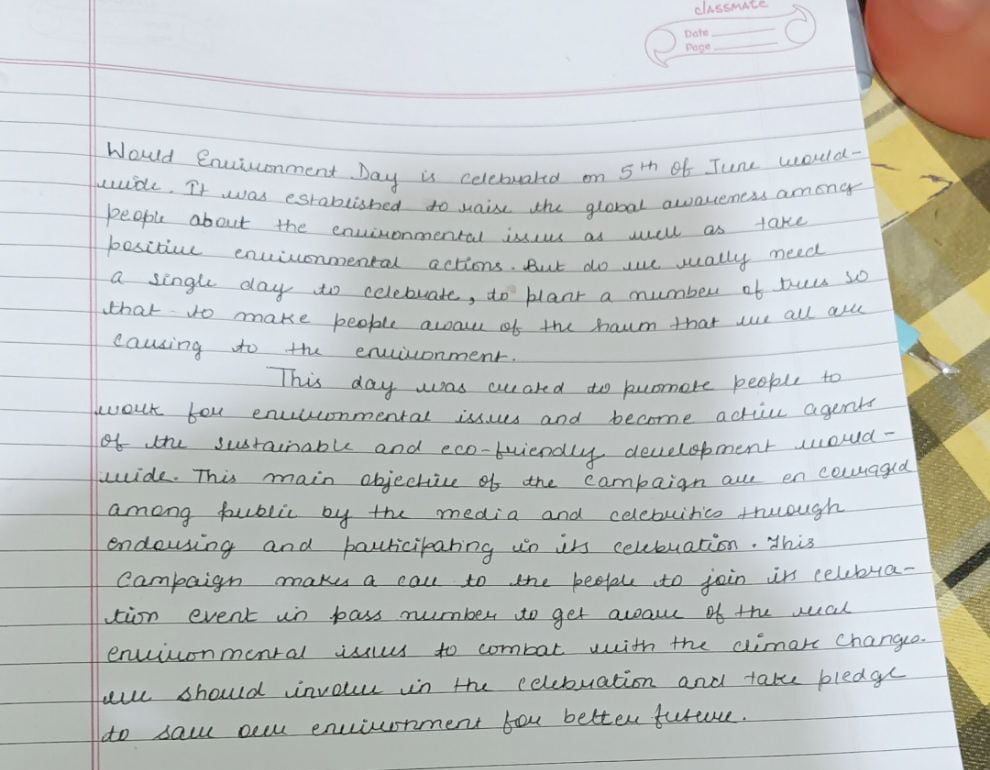 classmate
Date
Page
World Environment Day is celebrated on 5th of June world-
wide. It was established to raise the global awareness among
people about the environmental issues as well as take
positive environmental actions. But do we really need
a single day to celebrate, to plant a number of trees so
that to make people aware of the harm that we all are
causing to the environment.
This day was created to promote people to
work for environmental issues and become active agents
of the sustainable and eco-friendly development world-
wide. This main objective of the campaign are en couraged
among public by the media and celebrities through
endorsing and participating in its celebration. This
Campaign makes a call to the people to join its celebra-
tion event in pass number to get aware of the real
environmental issues to combat with the climate changes.
we should involve in the celebration and take pledge
to save our environment for better future.